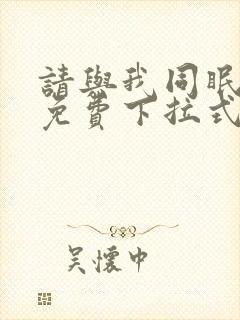 請與我同眠
免費下拉式
吳懷中